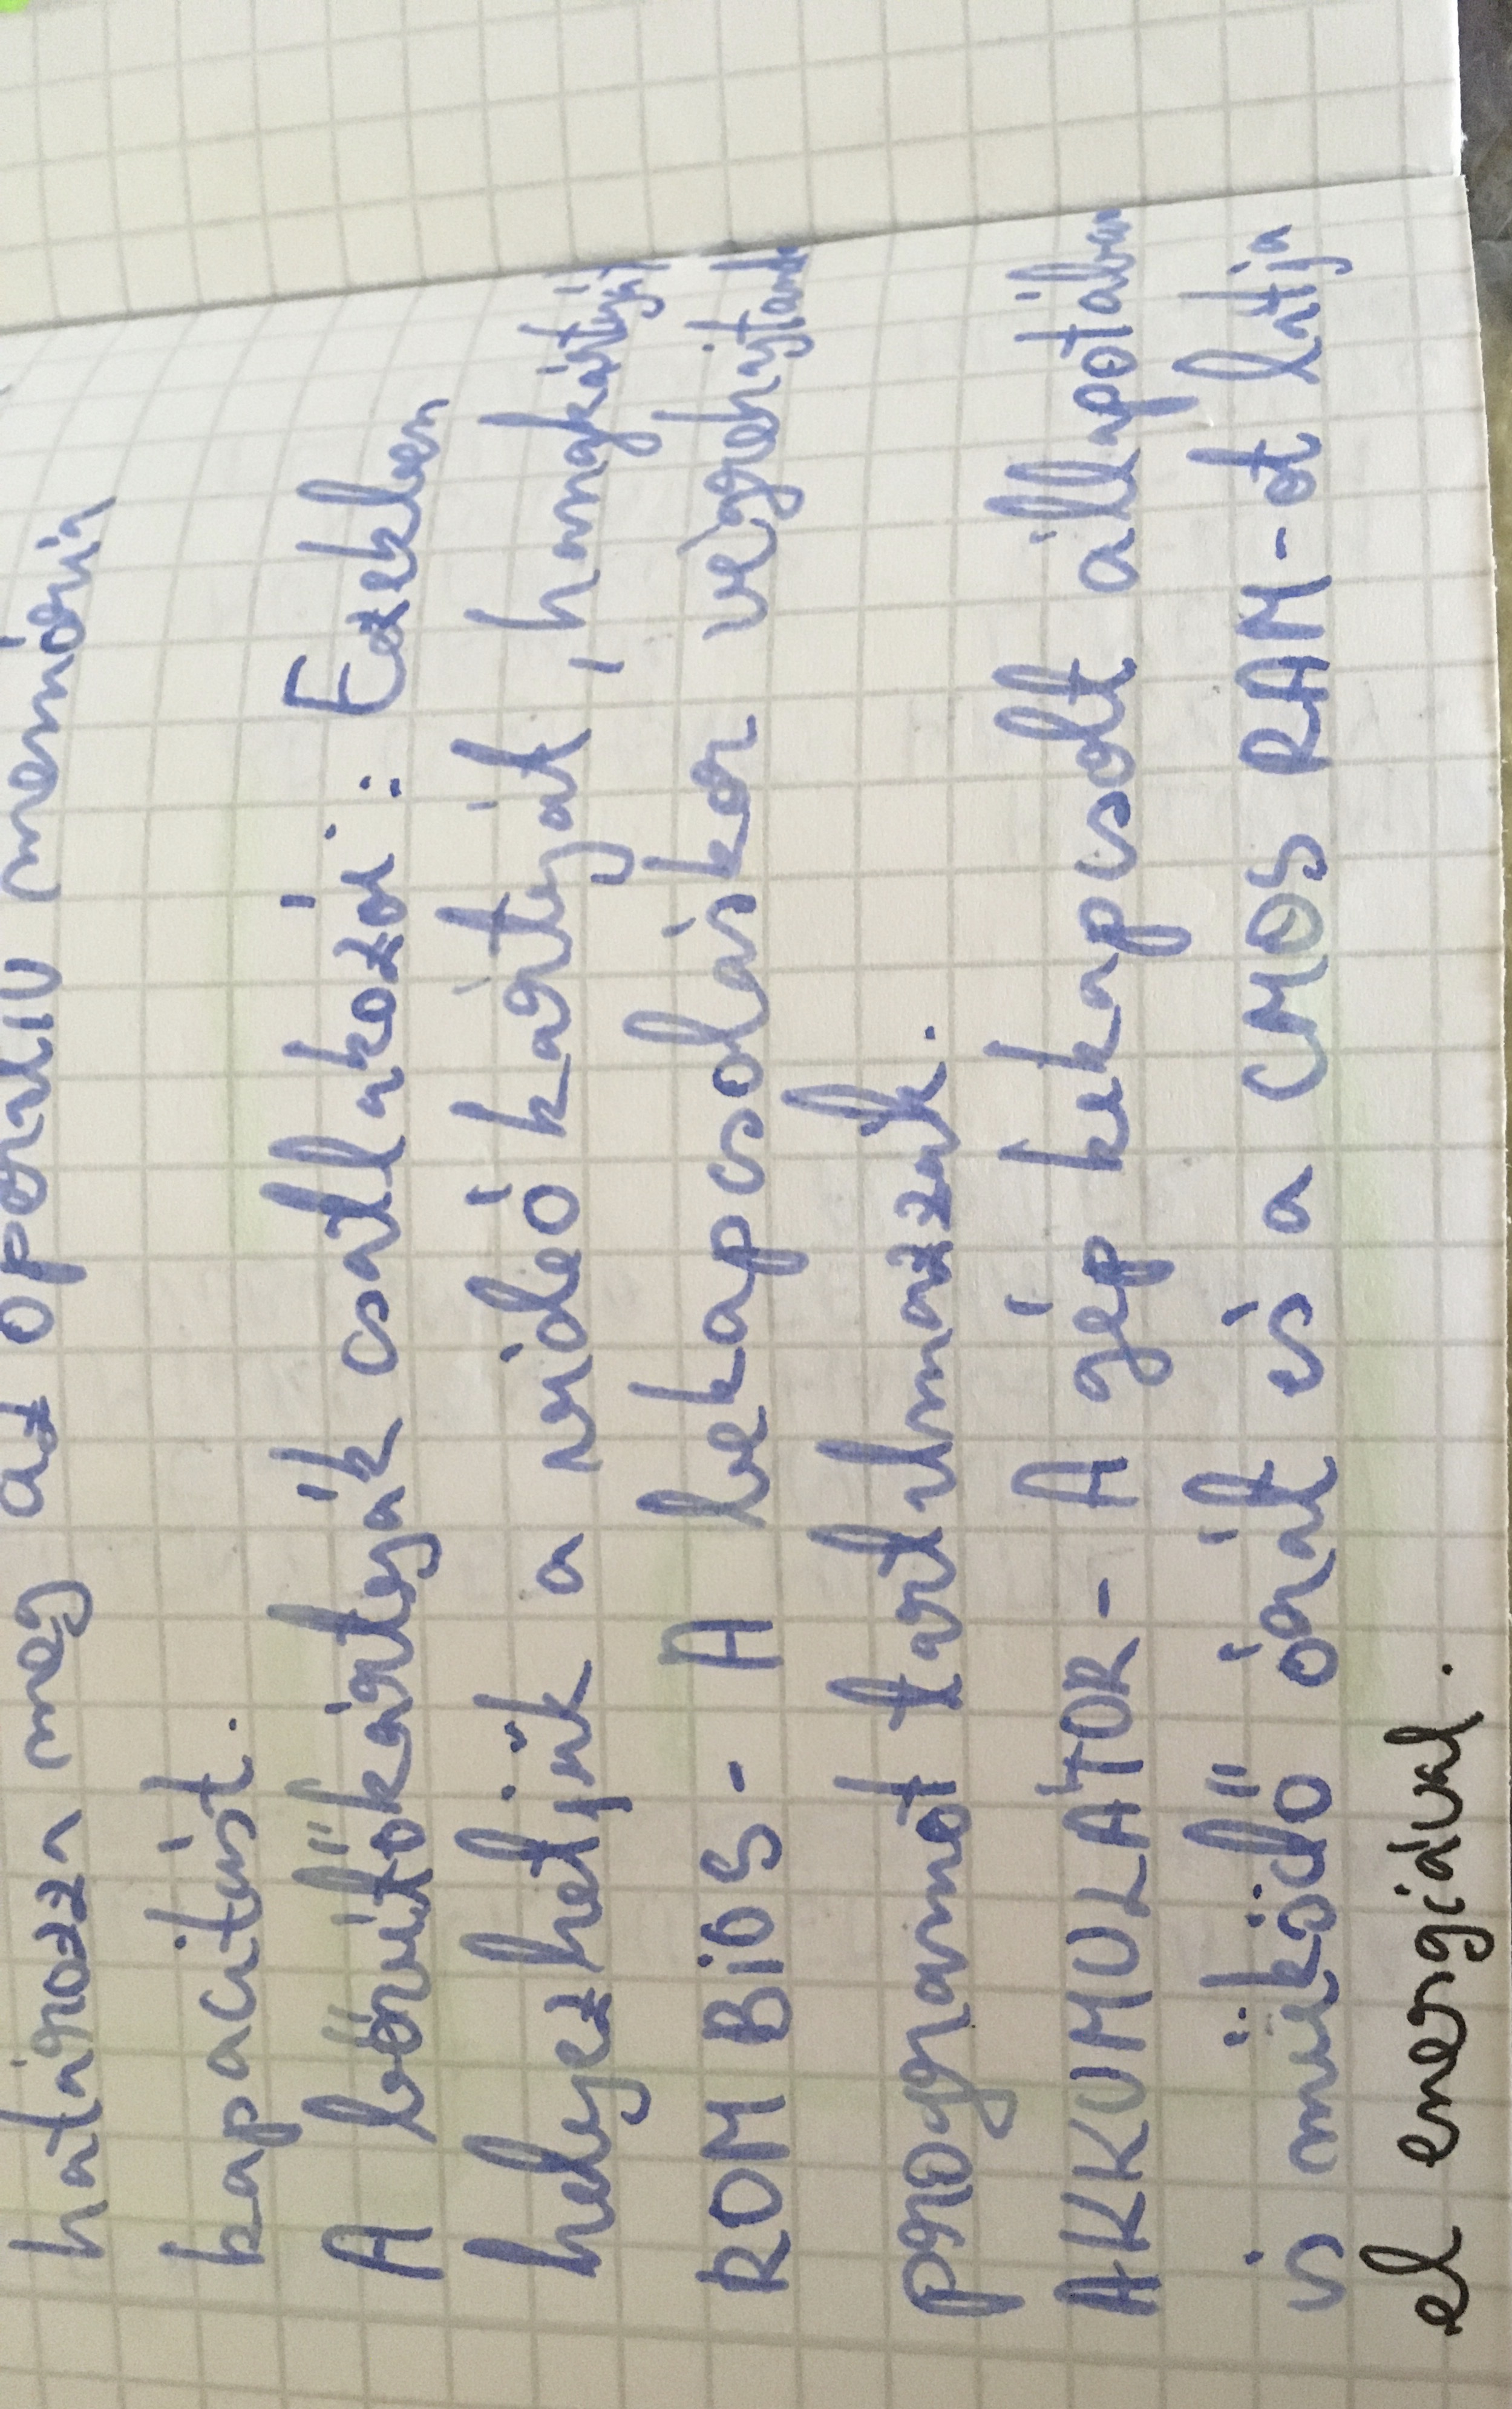 határozza meg az operatív memória
kapacitást.
A bővítőkártyák csatlakozói: Ezekben
helyezhetjük a videó kártyát, hangkártyát
ROM BiOS - A bekapcsoláskor végrehajtandó
programot tartalmazzák.
AKKUMULÁTOR - A gép kikapcsolt állapotában
is müködő órát és a CMOS RAM-ot látja
el energiával.